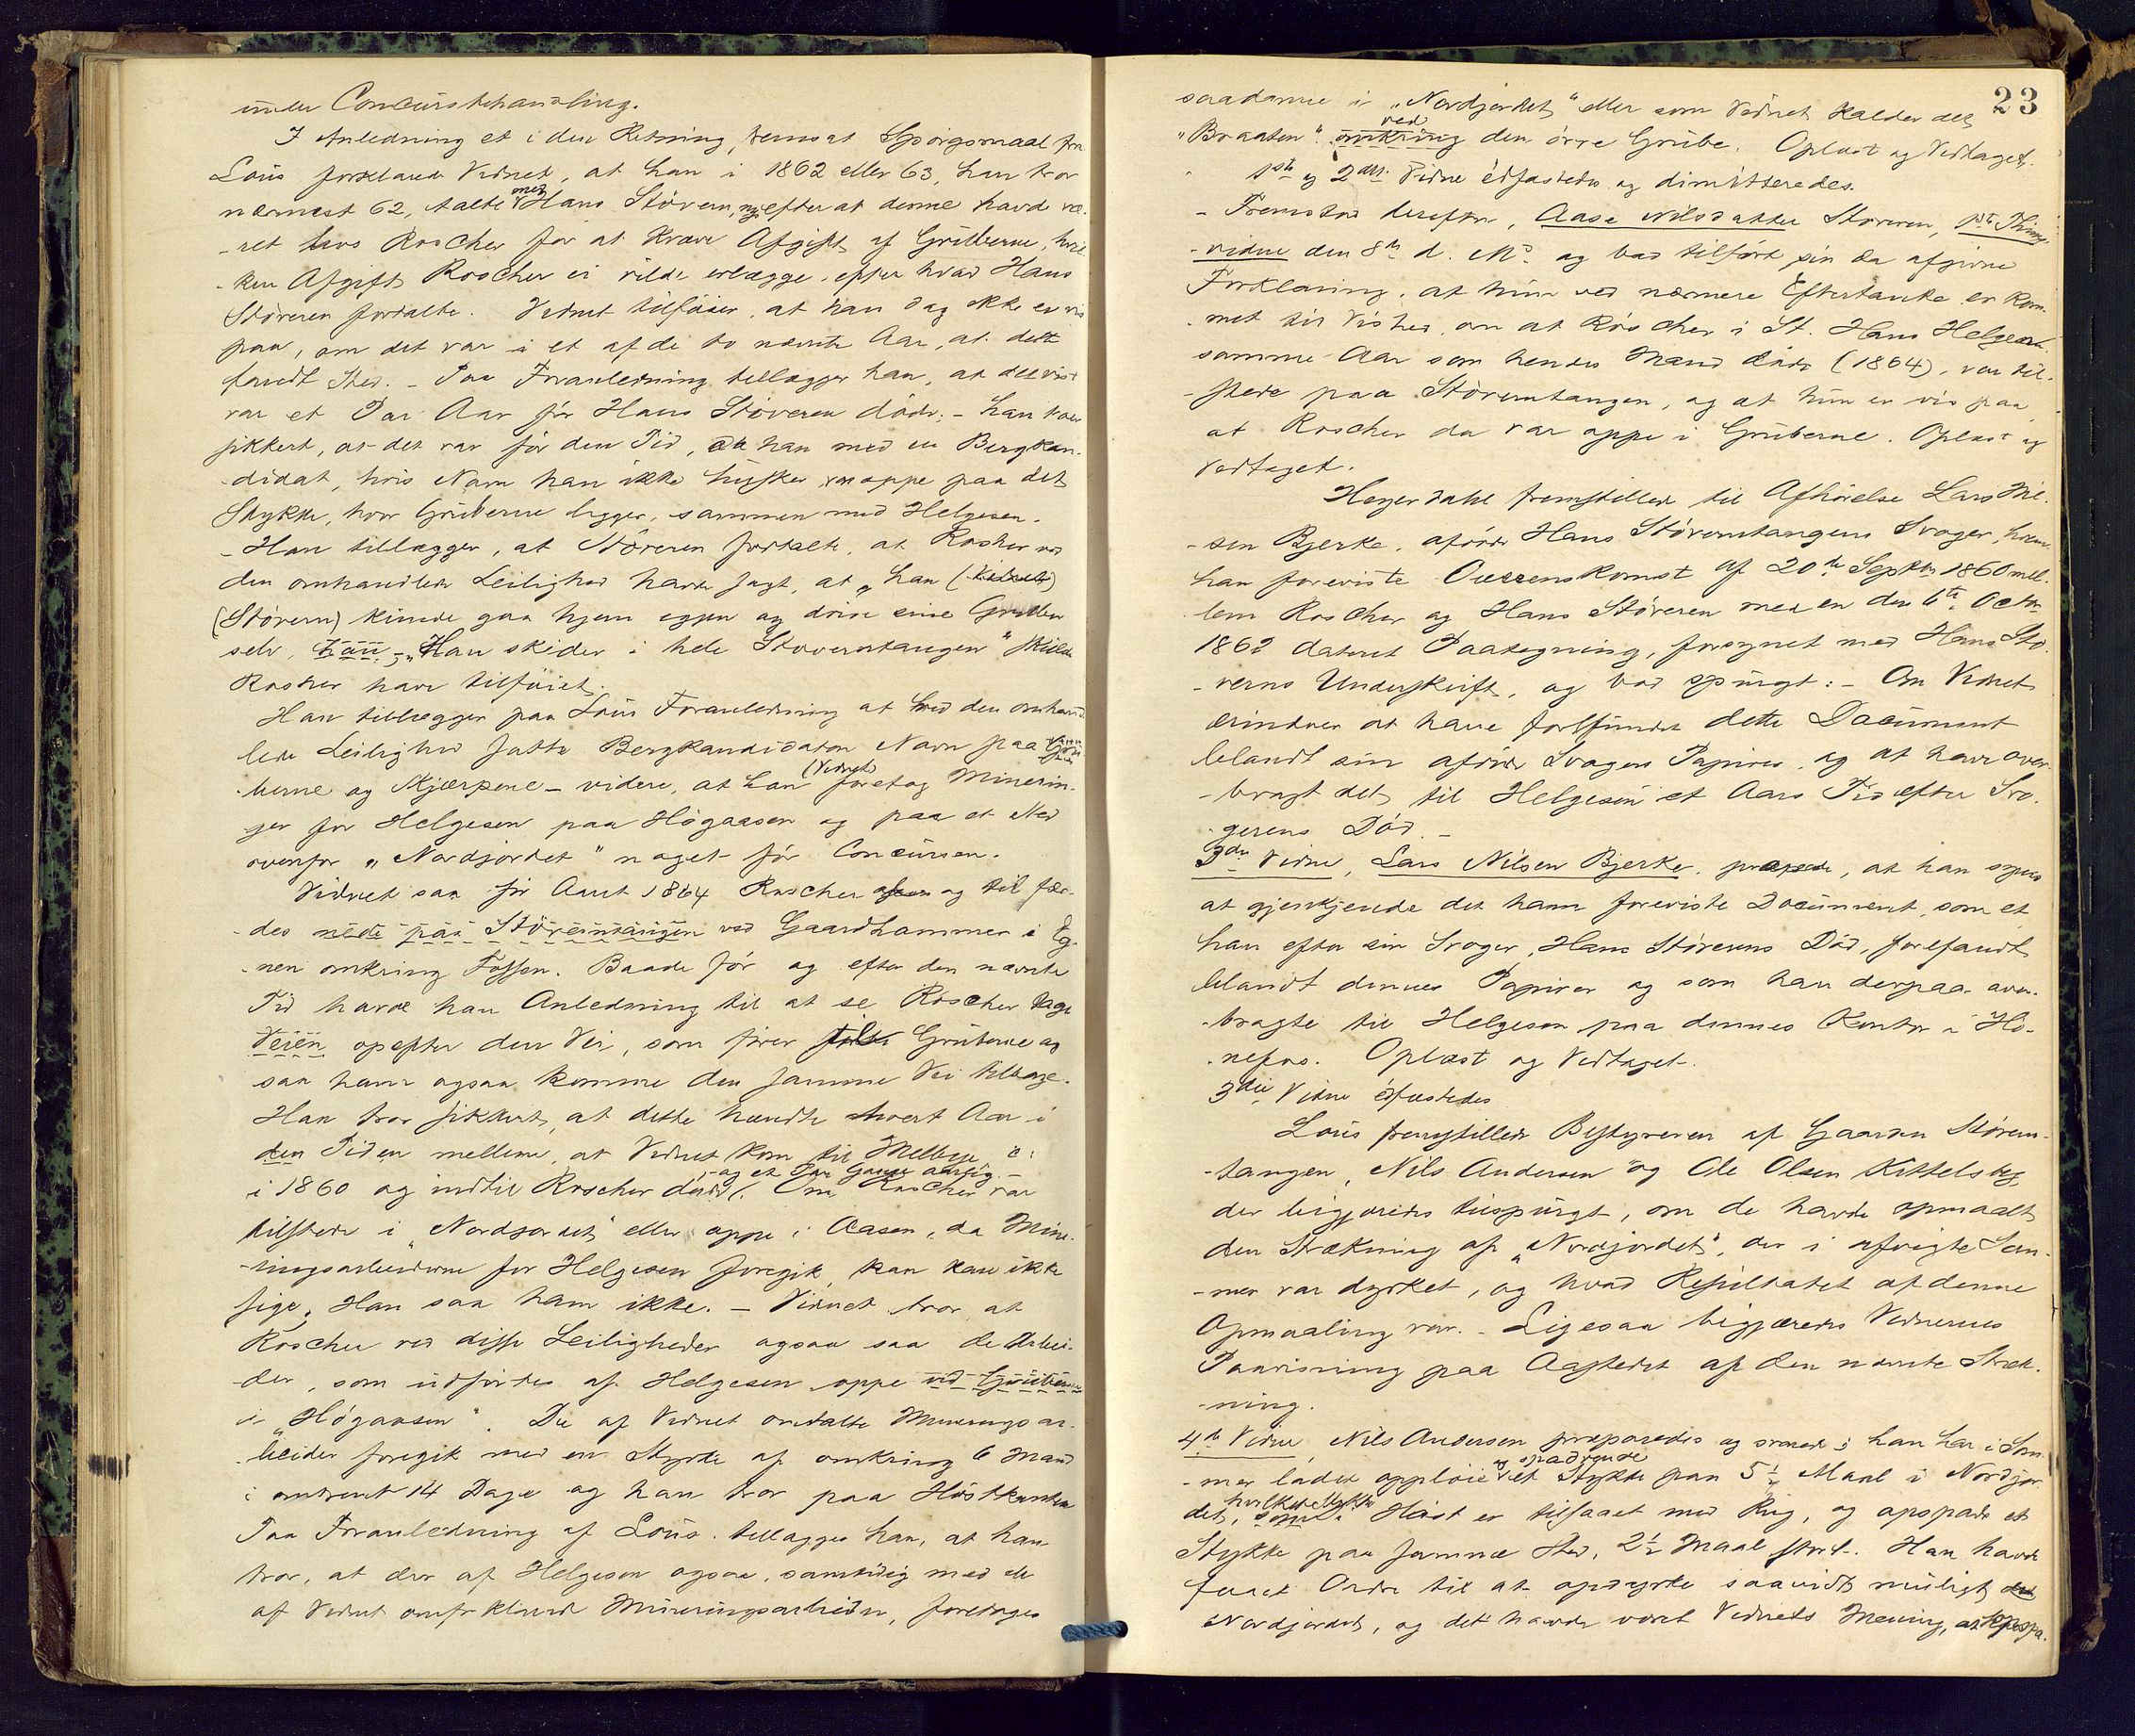 under Concursbehandling.
I Anledning et i den Retning fremsat Spörgsmaal fra
Lous forklarede Vidnet, at han i 1862 eller 63, han tror
nærmest 62, talte med Hans Stövern, efter at denne havde væ-
ret hos Roscher for at kræve Afgift af Gruberne, hvil-
ken Afgift Roscher ei vilde erlægge, efter hvad Hans
Störeren fortalte. Vidnet tilföier, at han dog ikke er vis
paa, om det var i et af de to nævnte Aar, at dette
fandt Sted. - Paa Foranledning tillægger han, at det vist
var et Par Aar för Hans Stöveren döde; - han tror
sikkert, at det var för den Tid, da han med en Bergkan-
didat, hvis Navn han ikke husker, var oppe paa det
Stykke, hvor Gruberne ligger, sammen med Helgesen.
- Han tillægger, at Störeren fortalte, at Rosher ved
den omhandlede Leilighed havde sagt, at „han
(Stövern) kunde gaa hjem igjen og drive sine Gruber
selv, - „Han skider i hele Stoverntangen" skulde
Rosher have tilföiet.
Han tillægger paa Lous Foranledning at ved den omhand-
lede Leilighed satte Bergkandidaten Navn paa Gru-
berne og Skjærpene - videre, at han (Vidnet) foretog Minerin-
ger for Helgesen paa Högaasen og paa et Sted
ovenfor „Nordjordet" noget för Concursen.
Vidnet saa för Aaret 1864 Roscher af og til fær-
des nede paa Störerntangen ved Gaardhammer i Eg-
nen omkring Fossen. Baade för og efter den nævnte
Tid havde han Anledning til at se Roscher tage
Veien opefter den Vei, som förer til Gruberne og
saa ham ogsaa komme den samme Vei tilbage.
Han tror sikkert, at dette hændte hvert Aar i
den Tiden mellem, at Vidnet kom til Mellbye o:
i 1860 og indtil Roscher döde, - og et Par Gange aarlig. - Om Roscher var
tilstede i „Nordjordet" eller oppe i Aasen, da Mine-
ringsarbeiderne for Helgesen foregik, kan han ikke
sige. Han saa ham ikke. - Vidnet tror, at
Roscher ved disse Leiligheder ogsaa saa de Arbei-
der, som udförtes af Helgesen oppe ved Gruberne
i „Högaasen". De af Vidnet omtalte Mineringsar-
beider foregik med en Styrke af omkring 6 Mand
i omtrent 14 Dage og han tror paa Höstkanten
Paa Foranledning af Lous tillægger han, at han
tror, at der af Helgesen ogsaa, samtidig med de
af Vidnet omforklarede Mineringsarbeider, foretoges
23
saadanne i „Nordjordet" eller som Vidnet kalder det
„Braaten" ved omkring den övre Grube. Oplæst og Vedtaget.
1ste og 2det Vidne edfæstedes og dimitteredes.
- Fremstod derefter, Aase Nilsdatter Störeren, 1ste Thing-
vidne den 8de d. Md. og bad tilfört sin da afgivne
Forklaring, at hun ved nærmere Eftertanke er kom-
met til Vished om at Röscher i St. Hans Helgen
samme Aar som hendes Mand döde (1864), var til-
stede paa Störerntangen, og at hun er vis paa
at Roscher da var oppe i Gruberne. Oplæst og
Vedtaget.
Heyerdahl fremstillede til Afhörelse Lars Nil-
sen Bjerke, afdöde Hans Störerntangens Svoger, hvem
han foreviste Overenskomst af 20de Septbr 1860 mel-
lem Roscher og Hans Störeren med en den 6te Octbr
1862 dateret Paategning, forsynet med Hans Stö-
verns Underskrift, og bad spurgt: - Om Vidnet
erindrer at have forefundet dette Document
blandt sin afdöde Svogers Papirer, og at have over-
bragt det til Helgesen et Aars Tid efter Svo-
gerens Död. -
3die Vidne, Lars Nilsen Bjerke, , at han synes
at gjenkjende det ham foreviste Document, som et
han efter sin Svoger, Hans Störerens Död, forefandt
blandt dennes Papirer og som han derpaa over-
bragte til Helgesen paa dennes Kontor i Hö-
nefos. Oplæst og Vedtaget.
3die Vidne edfæstedes
Lous fremstillede Bestyreren af Gaarden Störern-
tangen, Nils Andersen og Ole Olsen Kittelsby,
der begjæredes tilspurgt, om de havde opmaalt
den Strækning af „Nordjordet", der i afvigte Som-
mer var dyrket, og hvad Resultatet af denne
Opmaaling var. - Ligesaa begjæredes Vidnernes
Paavisning paa Aastedet af den nævnte Stræk-
ning.
4de Vidne Nils Andersen præparedes og svarede: han har i Som-
mer ladet opplöie og spadvende et Stykke paa 5½ Maal i Nordjor-
det, hvilket Stykke i Höst er tilsaaet med Rug, og opspadt et
Stykke paa samme Sted, 2½ Maal stort. Han havde
faaet Ordre til at opdyrke saavidt muligt
Nordjordet, og det havde været Vidnets Mening, at opspa-